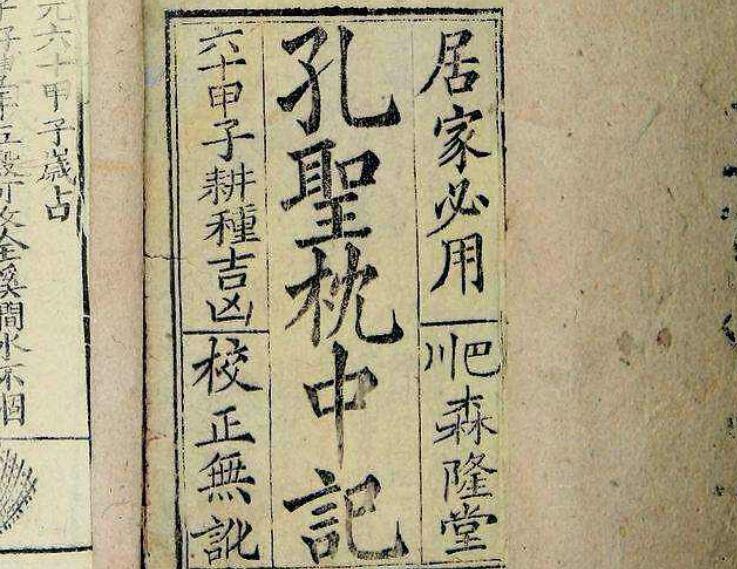 居家必用
川巴森隆堂
孔聖枕中記
六十甲子耕種吉凶
校正無訛
元六十甲子歲占